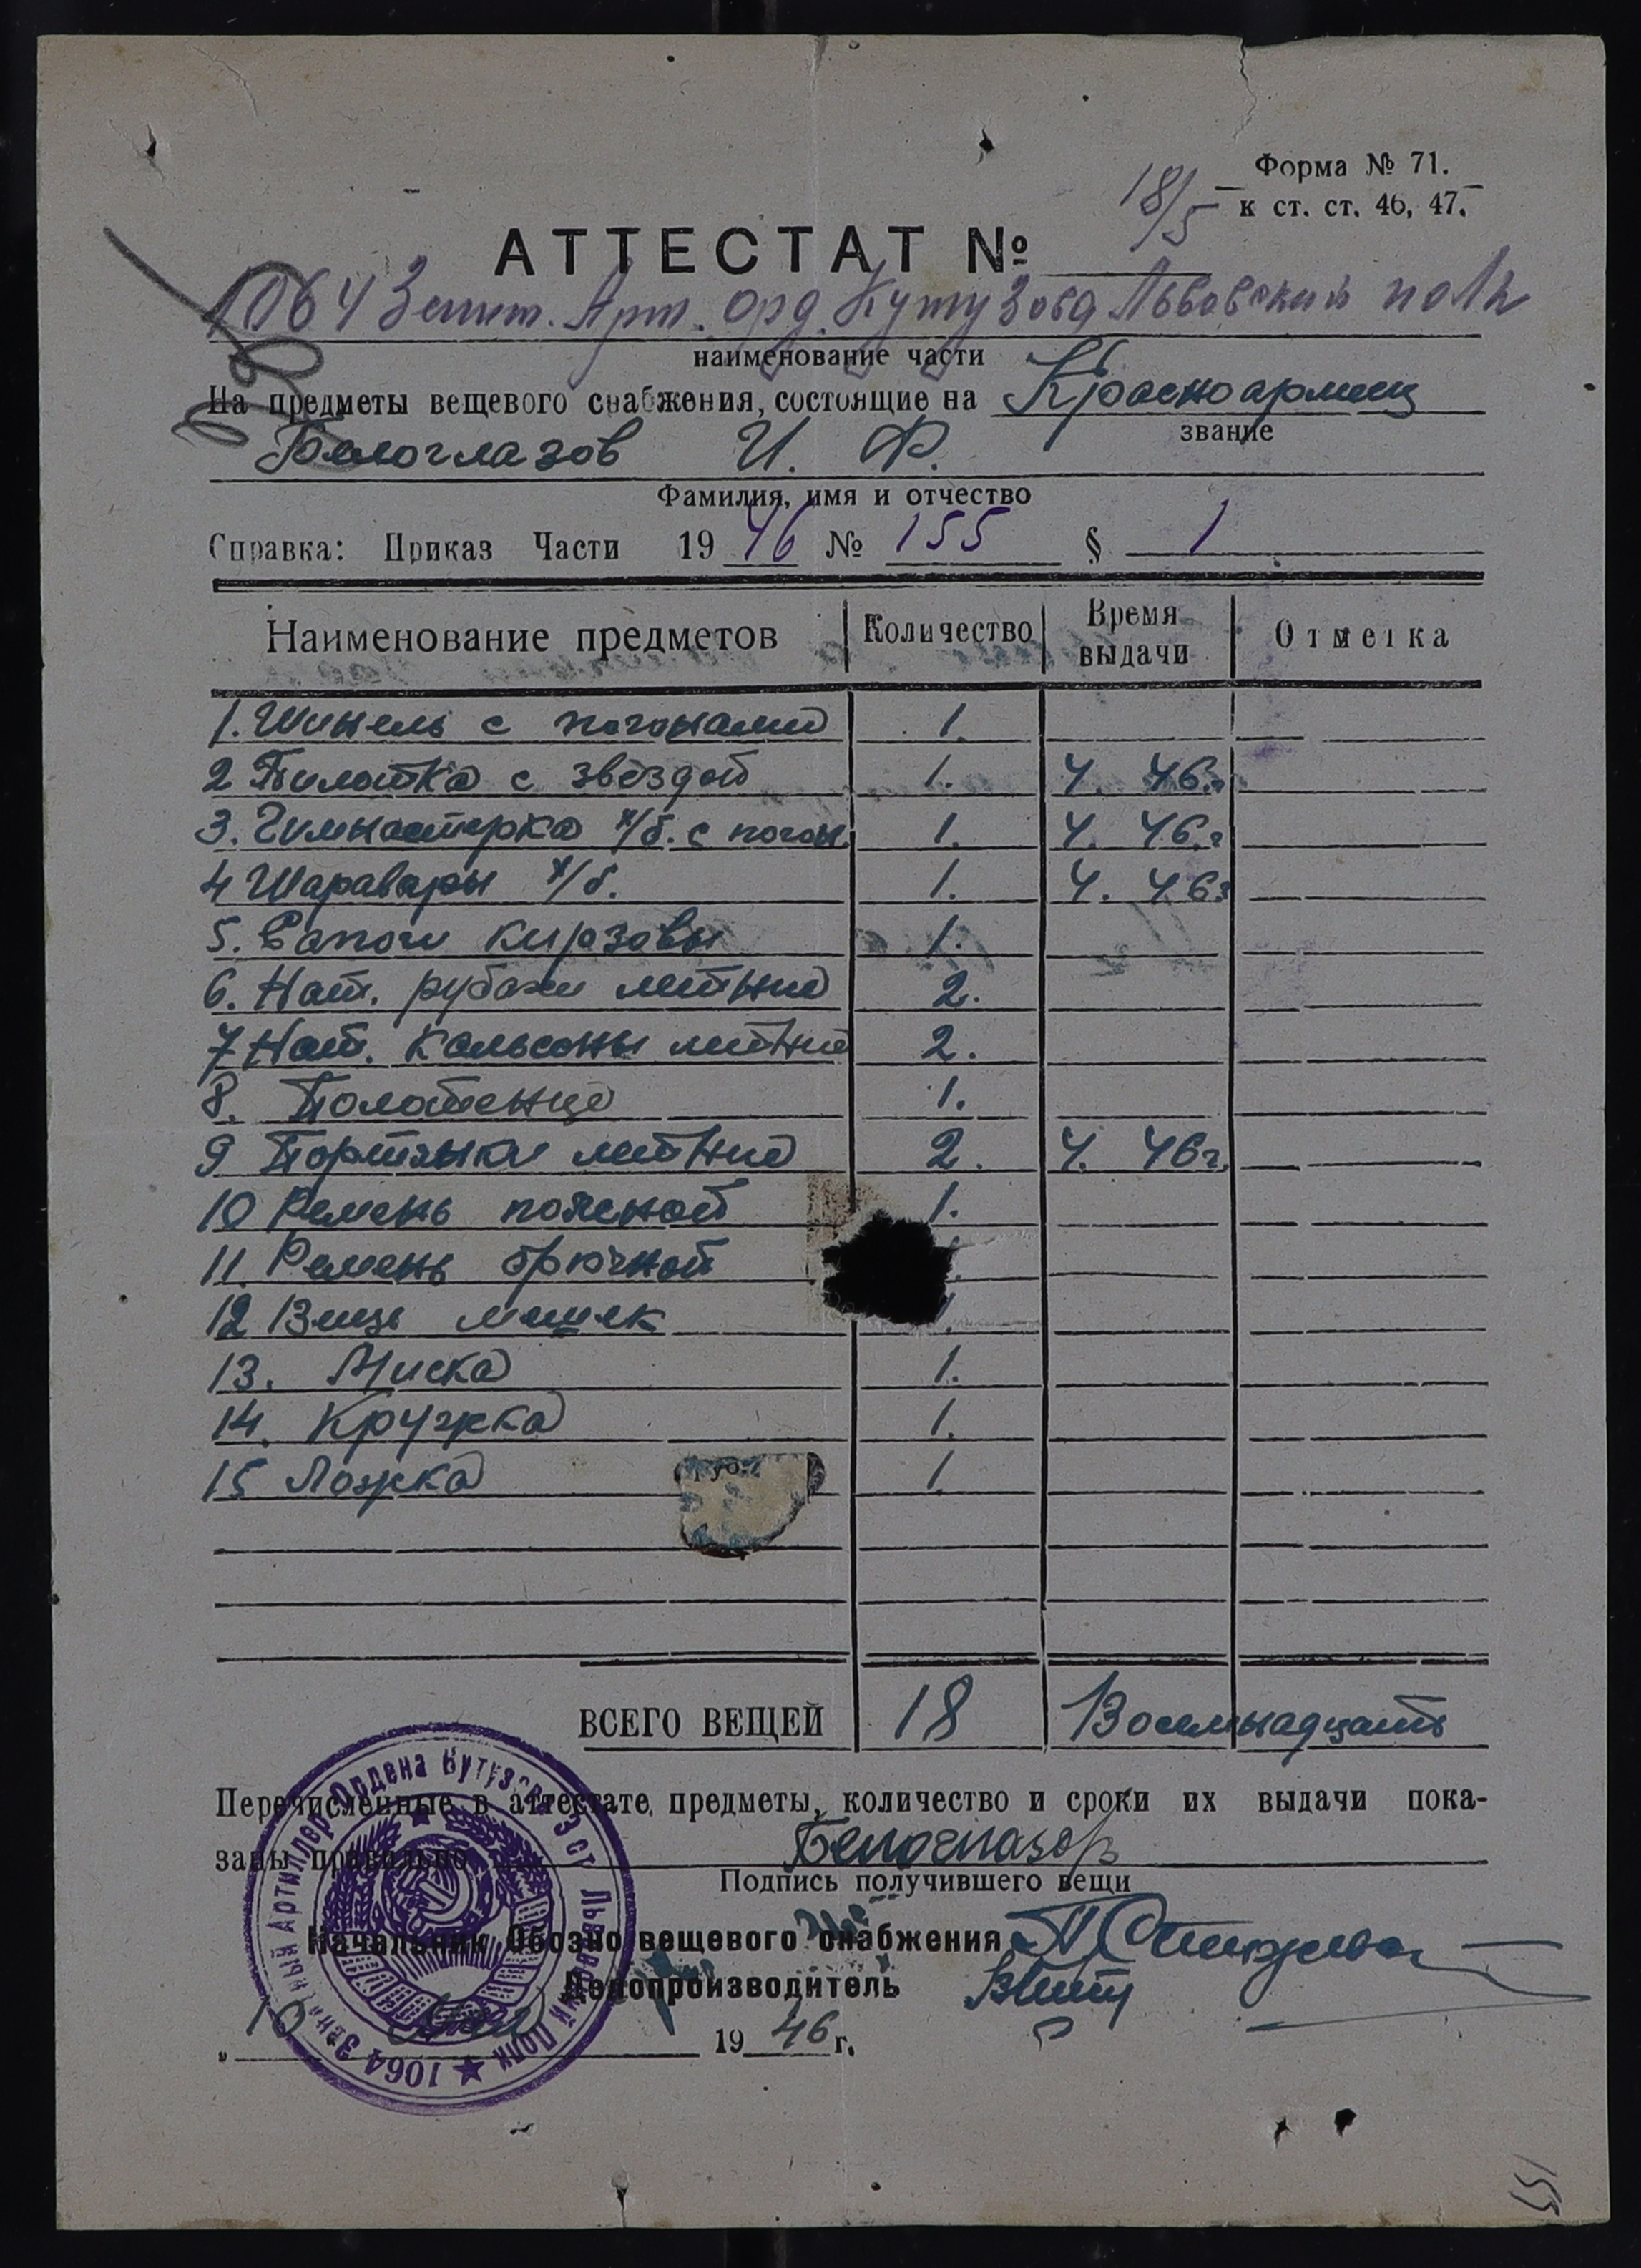 Форма № 71.
к ст. ст. 46, 47.
18/5
АТТЕСТАТ №
1064 Зенит. Арт. орд. Кутузова Львовский полк
наименование части
На предметы вещевого снабжения, состоящие на Красноармеец
звание
Белоглазов И. Ф.
Фамилия, имя и отчество
Справка: Приказ Части 1946 № 155 § 1
Наименование предметов Количество Время выдачи Отметка
1. Шинель с погонами 1.
2 Пилотка с звездой 1. 4. 46.г
3. Гимнастерка х/б. с погон. 1. 4. 46.г
4 Шаравары х/б. 1. 4. 46г
5. Сапоги кирзовы 1.
6. Нат. рубахи летние 2.
7 Нат. Кальсоны летние 2.
8. Полотенце 1.
9 Портянки летние 2. 4. 46г.
10 Ремень поясной 1.
11. Ремень брючной
12 Вещь мешек
13. Миска 1.
14. Кружка 1.
15 Ложка 1.
ВСЕГО ВЕЩЕЙ 18 Восемнадцать
Перечисленные в аттестате предметы, количество и сроки их выдачи пока-
заны правильно Белоглазов
Подпись получившего вещи
Начальник Обозно вещевого снабжения
Делопроизводитель
10 Мая 1946 г.
1064 Зенитный Артиллер. Ордена Кутузова 3 ст. Львовский Полк
155